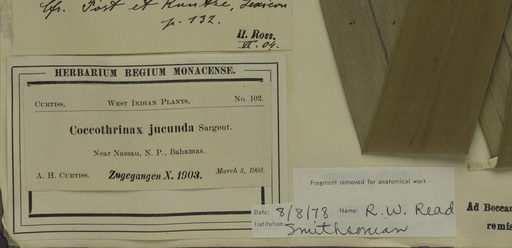 Cfr. Post et Kuntze, Lexicon
p. 132.
H. Ross,
VI. 04.
HERBARIUM REGIUM MONACENSE.
CURTISS, WEST INDIAN PLANTS, No. 102.
Coccothrinax jucunda Sargent.
Near Nassau, N. P., Bahamas.
A. H. CURTISS. Zugegangen X. 1903. March 3, 1903.
Fragment removed for anatomical work
Date: 8/8/78 Name: R. W. Read
Institution: Smithsonian
Ad Beccar
remis